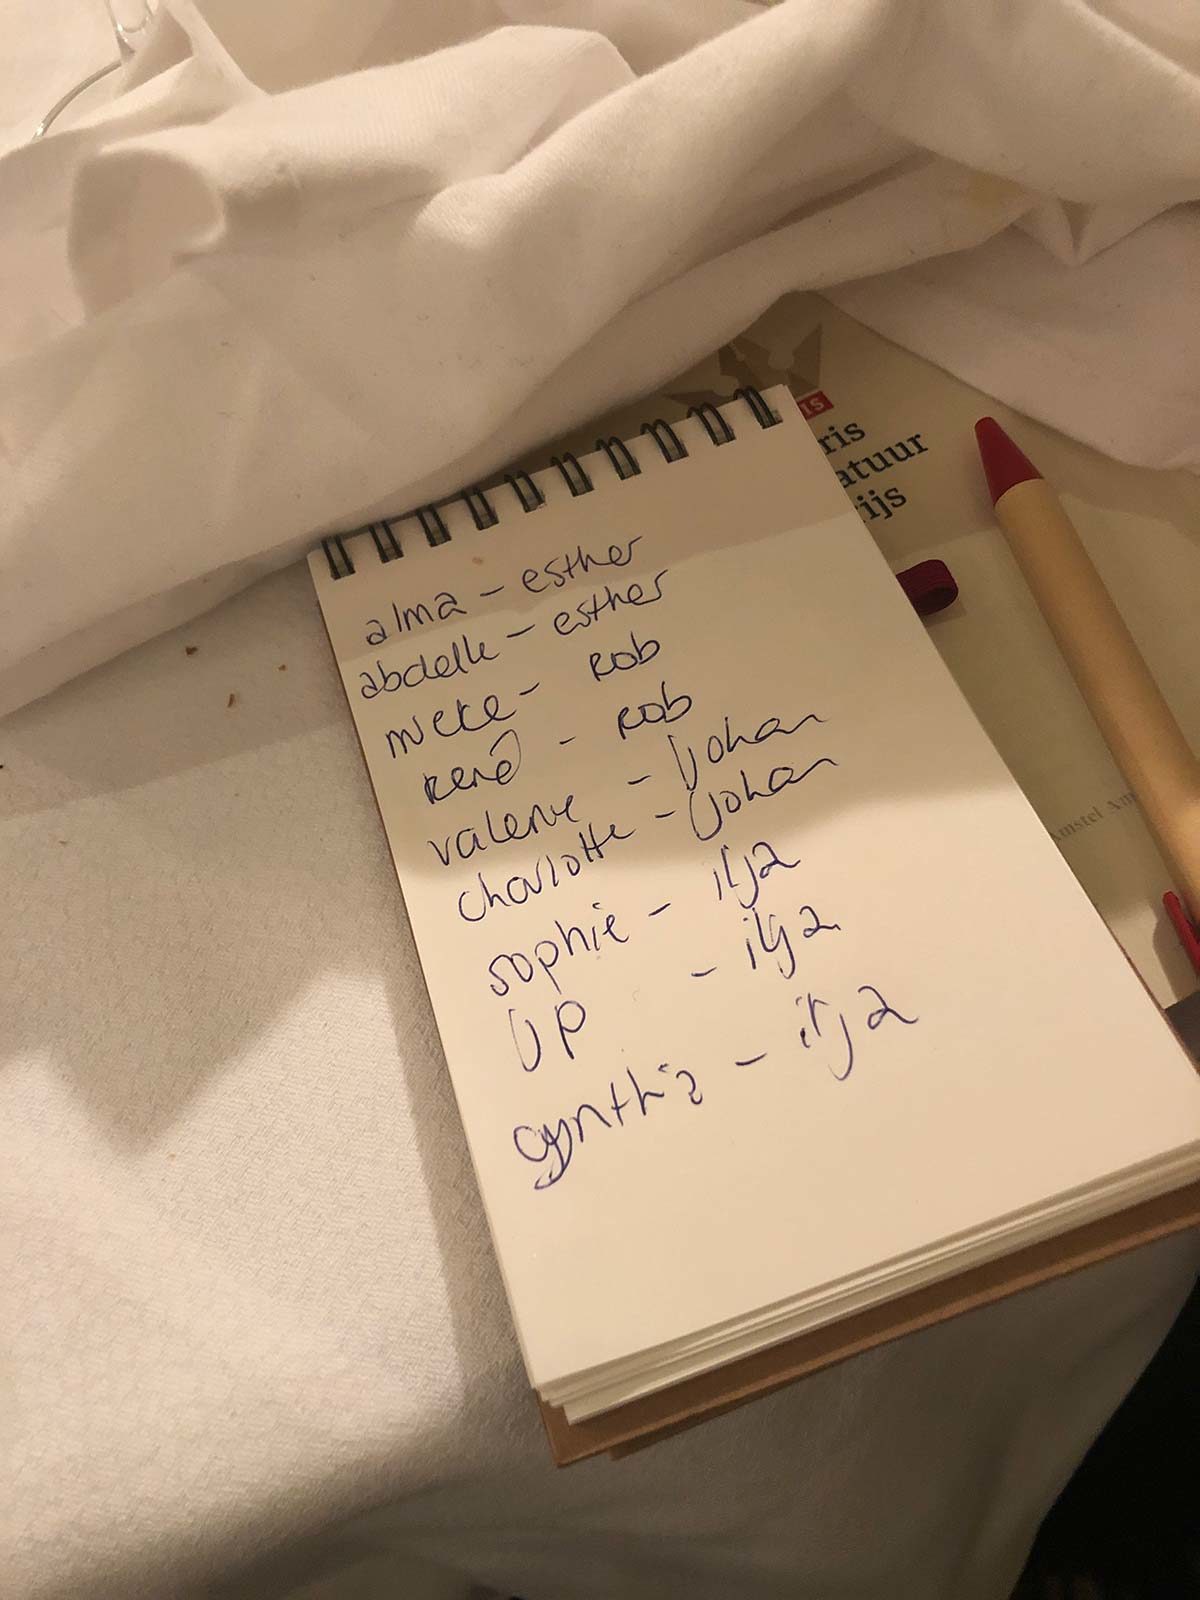 IS
ris
atuur
ijs
alma - esther
abdelk - esther
mieke - rob
rené - rob
valerie - Johan
charlotte - Johan
sophie - ilja
JP - ilja
cynthia - ilja
Amstel Am